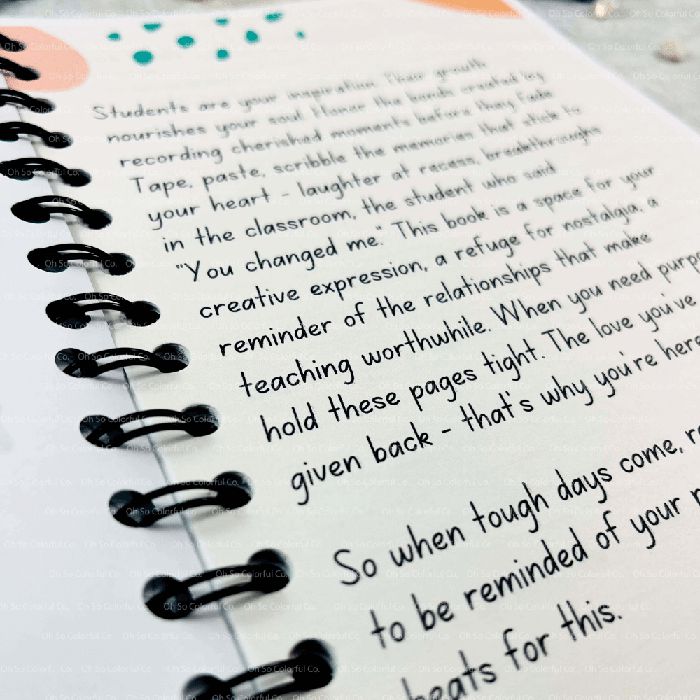 Students are your inspiration. Their growth
nourishes your soul. Honor the bonds created by
recording cherished moments before they fade
Tape, paste, scribble the memories that stick to
your heart - laughter at recess, breakthroughs
in the classroom, the student who said
"You changed me." This book is a space for your
creative expression, a refuge for nostalgia, a
reminder of the relationships that make
teaching worthwhile. When you need purpo
hold these pages tight. The love you've
given back - that's why you're here
So when tough days come, r
to be reminded of your
beats for this.
Oh So Colorful Co.